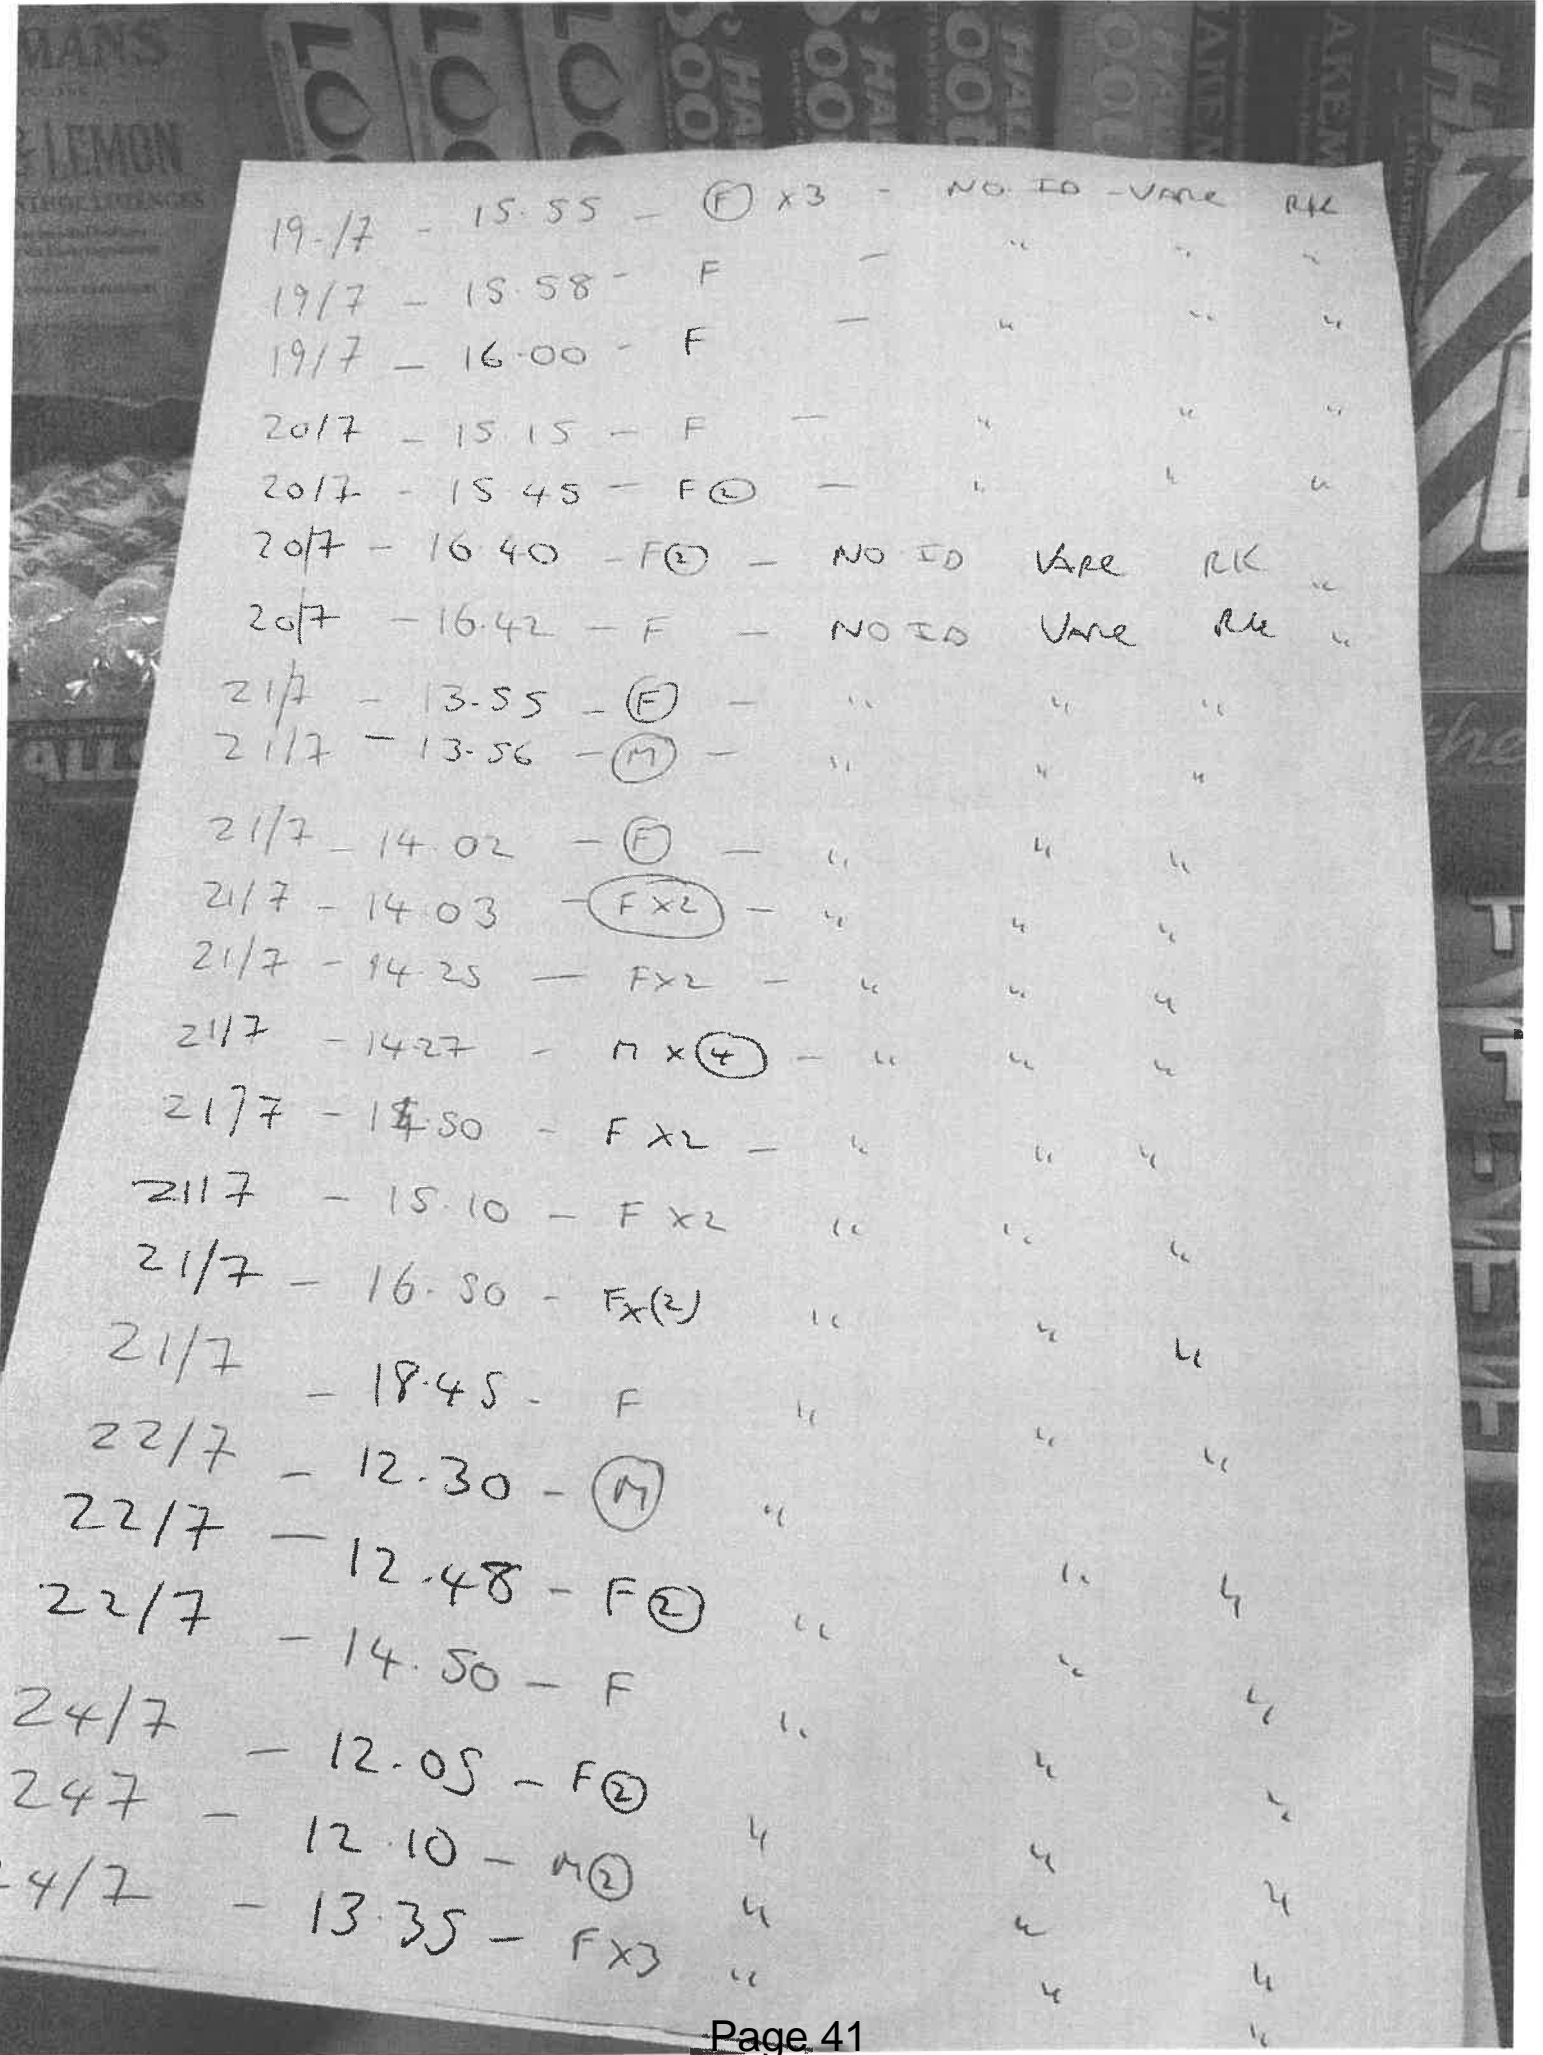 MANS
& LEMON
19-/7 - 15.55 - F x3 - NO ID - VAPE RK
19/7 - 15.58 - F - " " "
19/7 - 16.00 - F - " " "
20/7 - 15 15 - F - " " "
20/7 - 15 45 - F② - " " "
20/7 - 16 40 - F② - NO ID VAPE RK "
20/7 - 16.42 - F - NO ID VAPE RK "
21/7 - 13-55 - F - " " "
21/7 - 13-56 - M - " " "
21/7 - 14.02 - F - " " "
21/7 - 14.03 - F X2 - " " "
21/7 - 14.25 - FX2 - " " "
21/7 - 1427 - M x 4 - " " "
21/7 - 14.50 - F X2 - " " "
21/7 - 15.10 - F X2 " " "
21/7 - 16.50 - Fx(2) " " "
21/7 - 18.45 - F " " "
22/7 - 12.30 - M " " "
22/7 - 12.48 - F② " " "
22/7 - 14.50 - F " " "
24/7 - 12.05 - F② " " "
247 - 12.10 - M② " " "
4/7 - 13.35 - FX3 " " "
Page 41